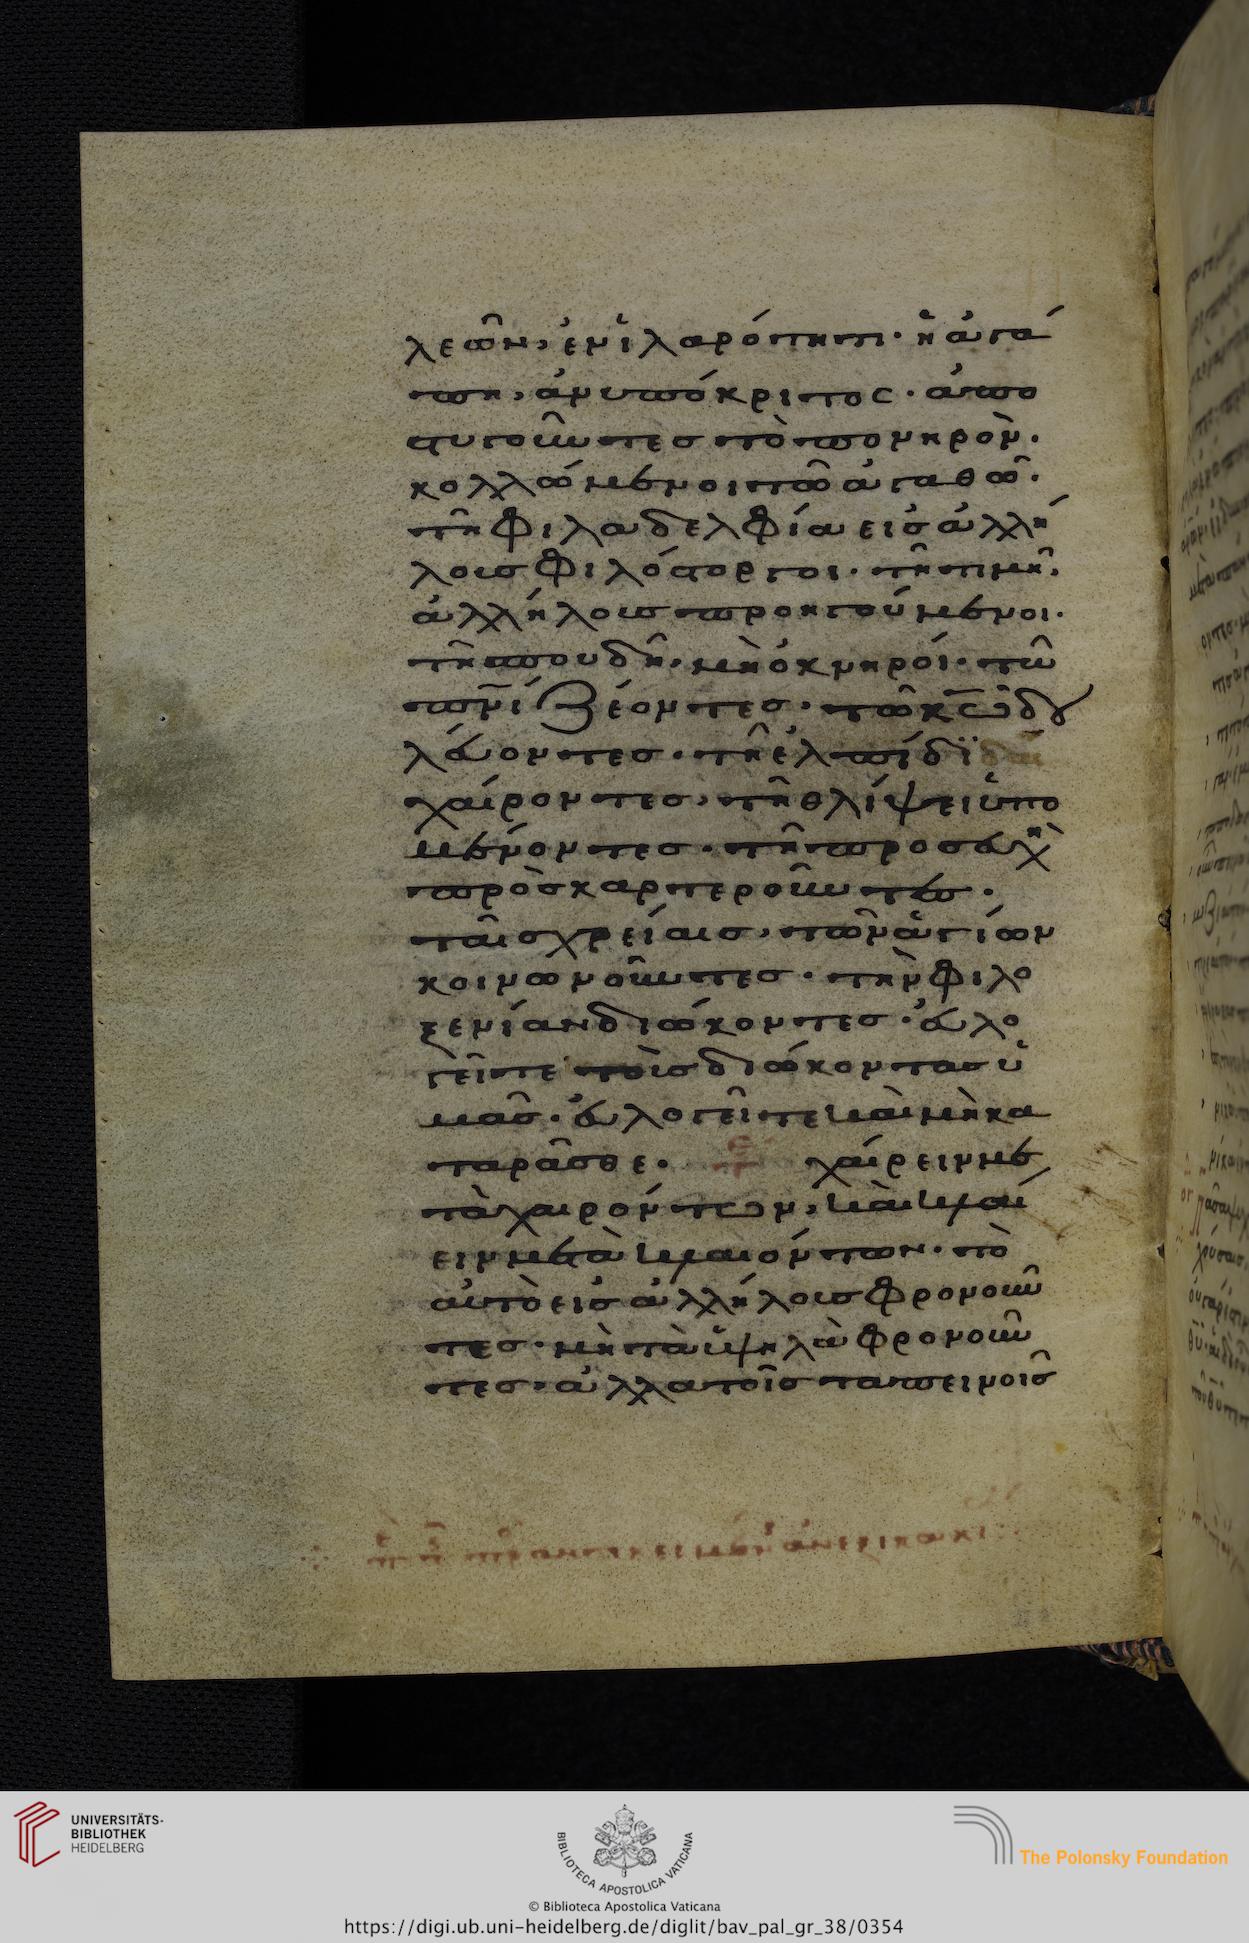 λεῶν, ἐν ἱλαρότητι· ἡ ἀγά
πη, ἀνυπόκριτος· ἀπο
στυγοῦντες τὸ πονηρὸν·
κολλώμενοι τῶ ἀγαθῶ·
τῆ φιλαδελφία εἰς ἀλλή
λους φιλόστοργοι· τῆ τιμῆ,
ἀλλήλους προηγούμενοι·
τῆ σπουδῆ, μὴ ὀκνηροί· τῶ
πνι ζέοντες· τῶ κω δου
λεύοντες· τῆ ἐλπίδϊ
χαίροντες, τῆ θλίψει ὑπο
μένοντες· τῆ προσευχῆ
πρὸσκαρτεροῦντες·
ταῖς χρείαις, τῶν ἁγίων
κοινωνοῦντες· τὴν φιλο
ξενίαν διώκοντες· εὐλο
γεῖτε τοὺς διώκοντας ὑ
μᾶς· εὐλογεῖτε καὶ μὴ κα
ταρᾶσθε· χαίρειν με
τὰ χαιρόντων, καὶ κλαί
ειν μετὰ κλαιόντων· τὸ
αὐτὸ εἰς ἀλλήλους φρονοῦν
τες· μὴ τὰ ὑψηλὰ φρονοῦν
τες· ἀλλα τοῖς ταπεινοῖς
UNIVERSITÄTS-
BIBLIOTHEK
HEIDELBERG
BIBLIOTECA APOSTOLICA VATICANA
The Polonsky Foundation
© Biblioteca Apostolica Vaticana
https://digi.ub.uni-heidelberg.de/diglit/bav_pal_gr_38/0354